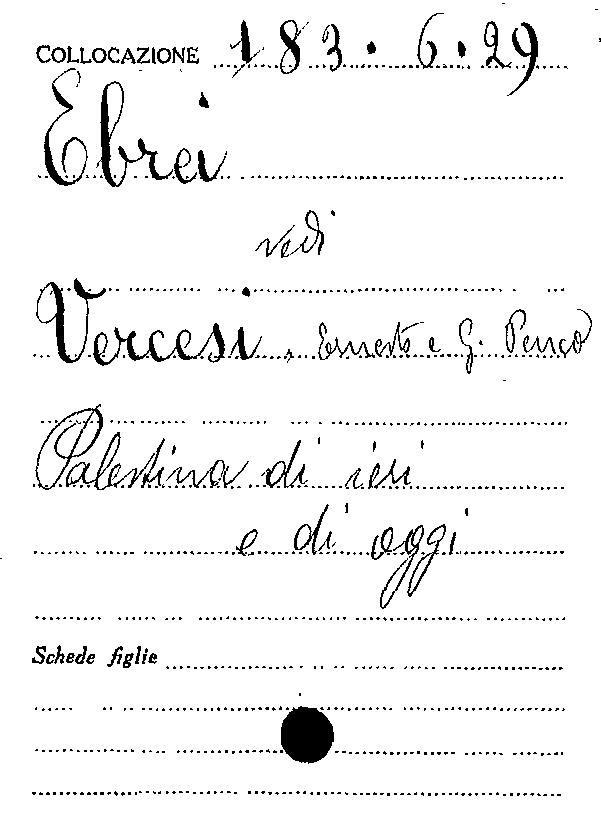 COLLOCAZIONE 183.6.29
Ebrei
vedi
Vercesi, Ernesto e G. Penco
Palestina di ieri
e di oggi
Schede figlie